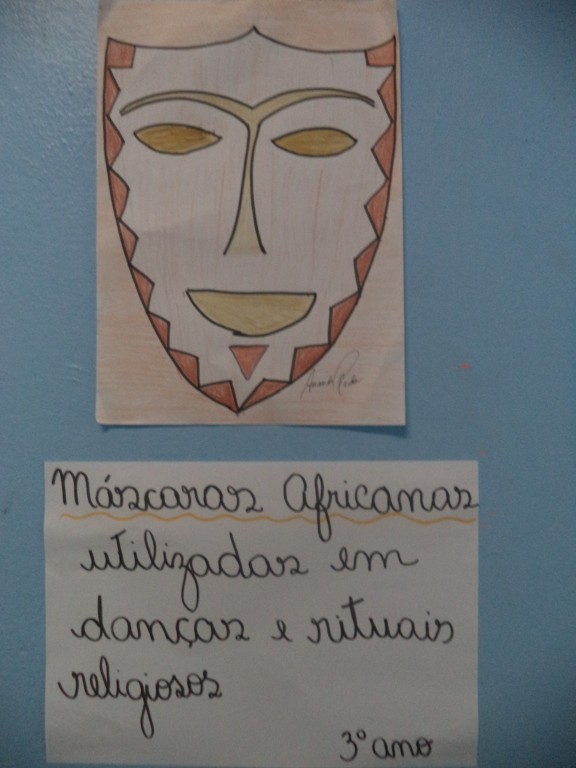 Máscaras Africanas
utilizadas em
danças e rituais
religiosos
3º ano